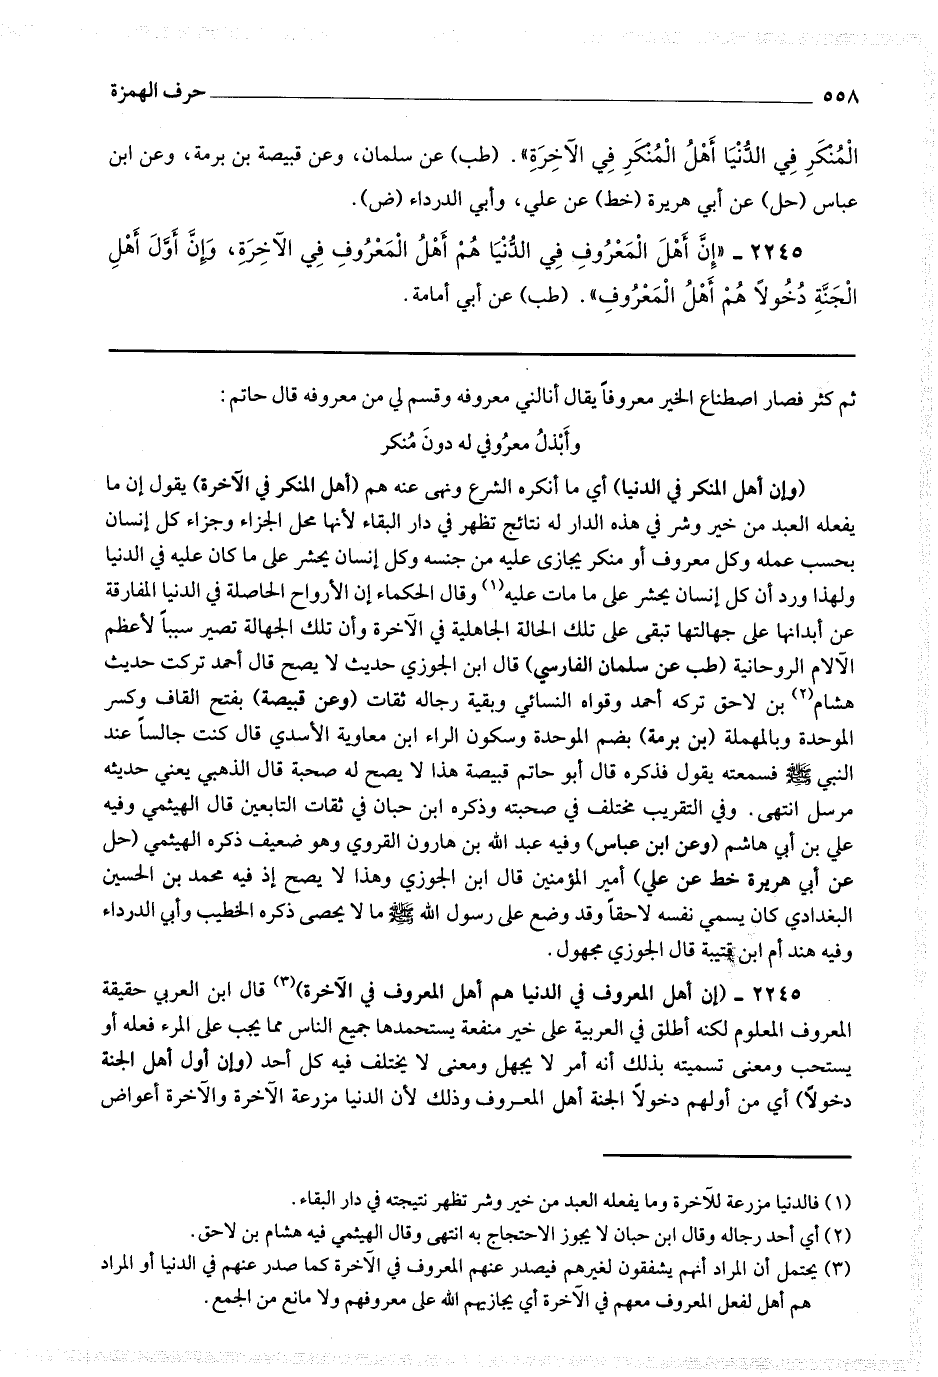 ٥٥٨ حرف الهمزة
الْمُنْكَرِ فِي الدُّنْيَا أَهْلُ الْمُنْكَرِ فِي الآخِرَةِ». (طب) عن سلمان، وعن قبيصة بن برمة، وعن ابن
عباس (حل) عن أبي هريرة (خط) عن علي، وأبي الدرداء (ض).
٢٢٤٥ ـ «إِنَّ أَهْلَ الْمَعْرُوفِ فِي الدُّنْيَا هُمْ أَهْلُ الْمَعْرُوفِ فِي الآخِرَةِ، وَإِنَّ أَوَّلَ أَهْلِ
الْجَنَّةِ دُخُولاً هُمْ أَهْلُ الْمَعْرُوفِ». (طب) عن أبي أمامة.
ثم كثر فصار اصطناع الخير معروفاً يقال أنالني معروفه وقسم لي من معروفه قال حاتم:
وأَبْذلُ معرُوفي له دونَ مُنكر
(وإن أهل المنكر في الدنيا) أي ما أنكره الشرع ونهى عنه هم (أهل المنكر في الآخرة) يقول إن ما
يفعله العبد من خير وشر في هذه الدار له نتائج تظهر في دار البقاء لأنها محل الجزاء وجزاء كل إنسان
بحسب عمله وكل معروف أو منكر يجازى عليه من جنسه وكل إنسان يحشر على ما كان عليه في الدنيا
ولهذا ورد أن كل إنسان يحشر على ما مات عليه(١) وقال الحكماء إن الأرواح الحاصلة في الدنيا المفارقة
عن أبدانها على جهالتها تبقى على تلك الحالة الجاهلية في الآخرة وأن تلك الجهالة تصير سبباً لأعظم
الآلام الروحانية (طب عن سلمان الفارسي) قال ابن الجوزي حديث لا يصح قال أحمد تركت حديث
هشام(٢) بن لاحق تركه أحمد وقواه النسائي وبقية رجاله ثقات (وعن قبيصة) بفتح القاف وكسر
الموحدة وبالمهملة (بن برمة) بضم الموحدة وسكون الراء ابن معاوية الأسدي قال كنت جالساً عند
النبي ﷺ فسمعته يقول فذكره قال أبو حاتم قبيصة هذا لا يصح له صحبة قال الذهبي يعني حديثه
مرسل انتهى. وفي التقريب مختلف في صحبته وذكره ابن حبان في ثقات التابعين قال الهيثمي وفيه
علي بن أبي هاشم (وعن ابن عباس) وفيه عبد الله بن هارون القروي وهو ضعيف ذكره الهيثمي (حل
عن أبي هريرة خط عن علي) أمير المؤمنين قال ابن الجوزي وهذا لا يصح إذ فيه محمد بن الحسين
البغدادي كان يسمي نفسه لاحقاً وقد وضع على رسول الله ﷺ ما لا يحصى ذكره الخطيب وأبي الدرداء
وفيه هند أم ابن قتيبة قال الجوزي مجهول.
٢٢٤٥ ـ (إن أهل المعروف في الدنيا هم أهل المعروف في الآخرة)(٣) قال ابن العربي حقيقة
المعروف المعلوم لكنه أطلق في العربية على خير منفعة يستحمدها جميع الناس مما يجب على المرء فعله أو
يستحب ومعنى تسميته بذلك أنه أمر لا يجهل ومعنى لا يختلف فيه كل أحد (وإن أول أهل الجنة
دخولاً) أي من أولهم دخولاً الجنة أهل المعـروف وذلك لأن الدنيا مزرعة الآخرة والآخرة أعواض
(١) فالدنيا مزرعة للآخرة وما يفعله العبد من خير وشر تظهر نتيجته في دار البقاء.
(٢) أي أحد رجاله وقال ابن حبان لا يجوز الاحتجاج به انتهى وقال الهيثمي فيه هشام بن لاحق.
(٣) يحتمل أن المراد أنهم يشفقون لغيرهم فيصدر عنهم المعروف في الآخرة كما صدر عنهم في الدنيا أو المراد
هم أهل لفعل المعروف معهم في الآخرة أي يجازيهم الله على معروفهم ولا مانع من الجمع.